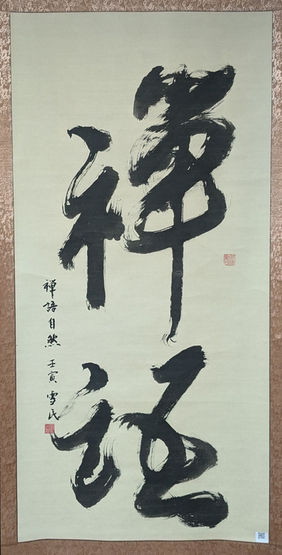 禪語
禪語自然 壬寅 雪氏